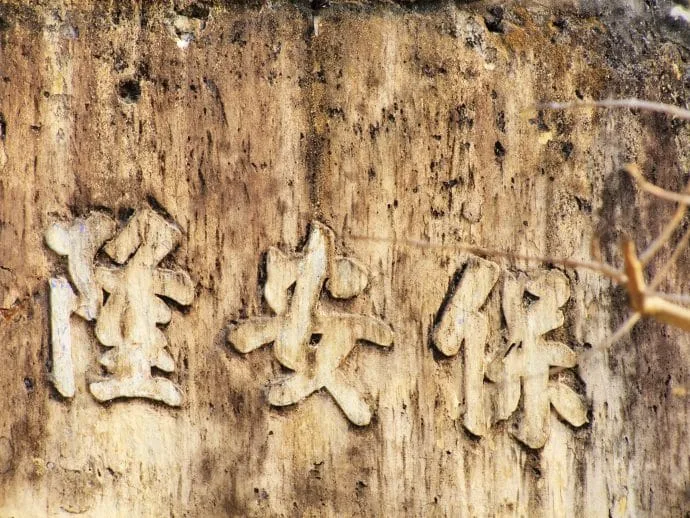 保安隆